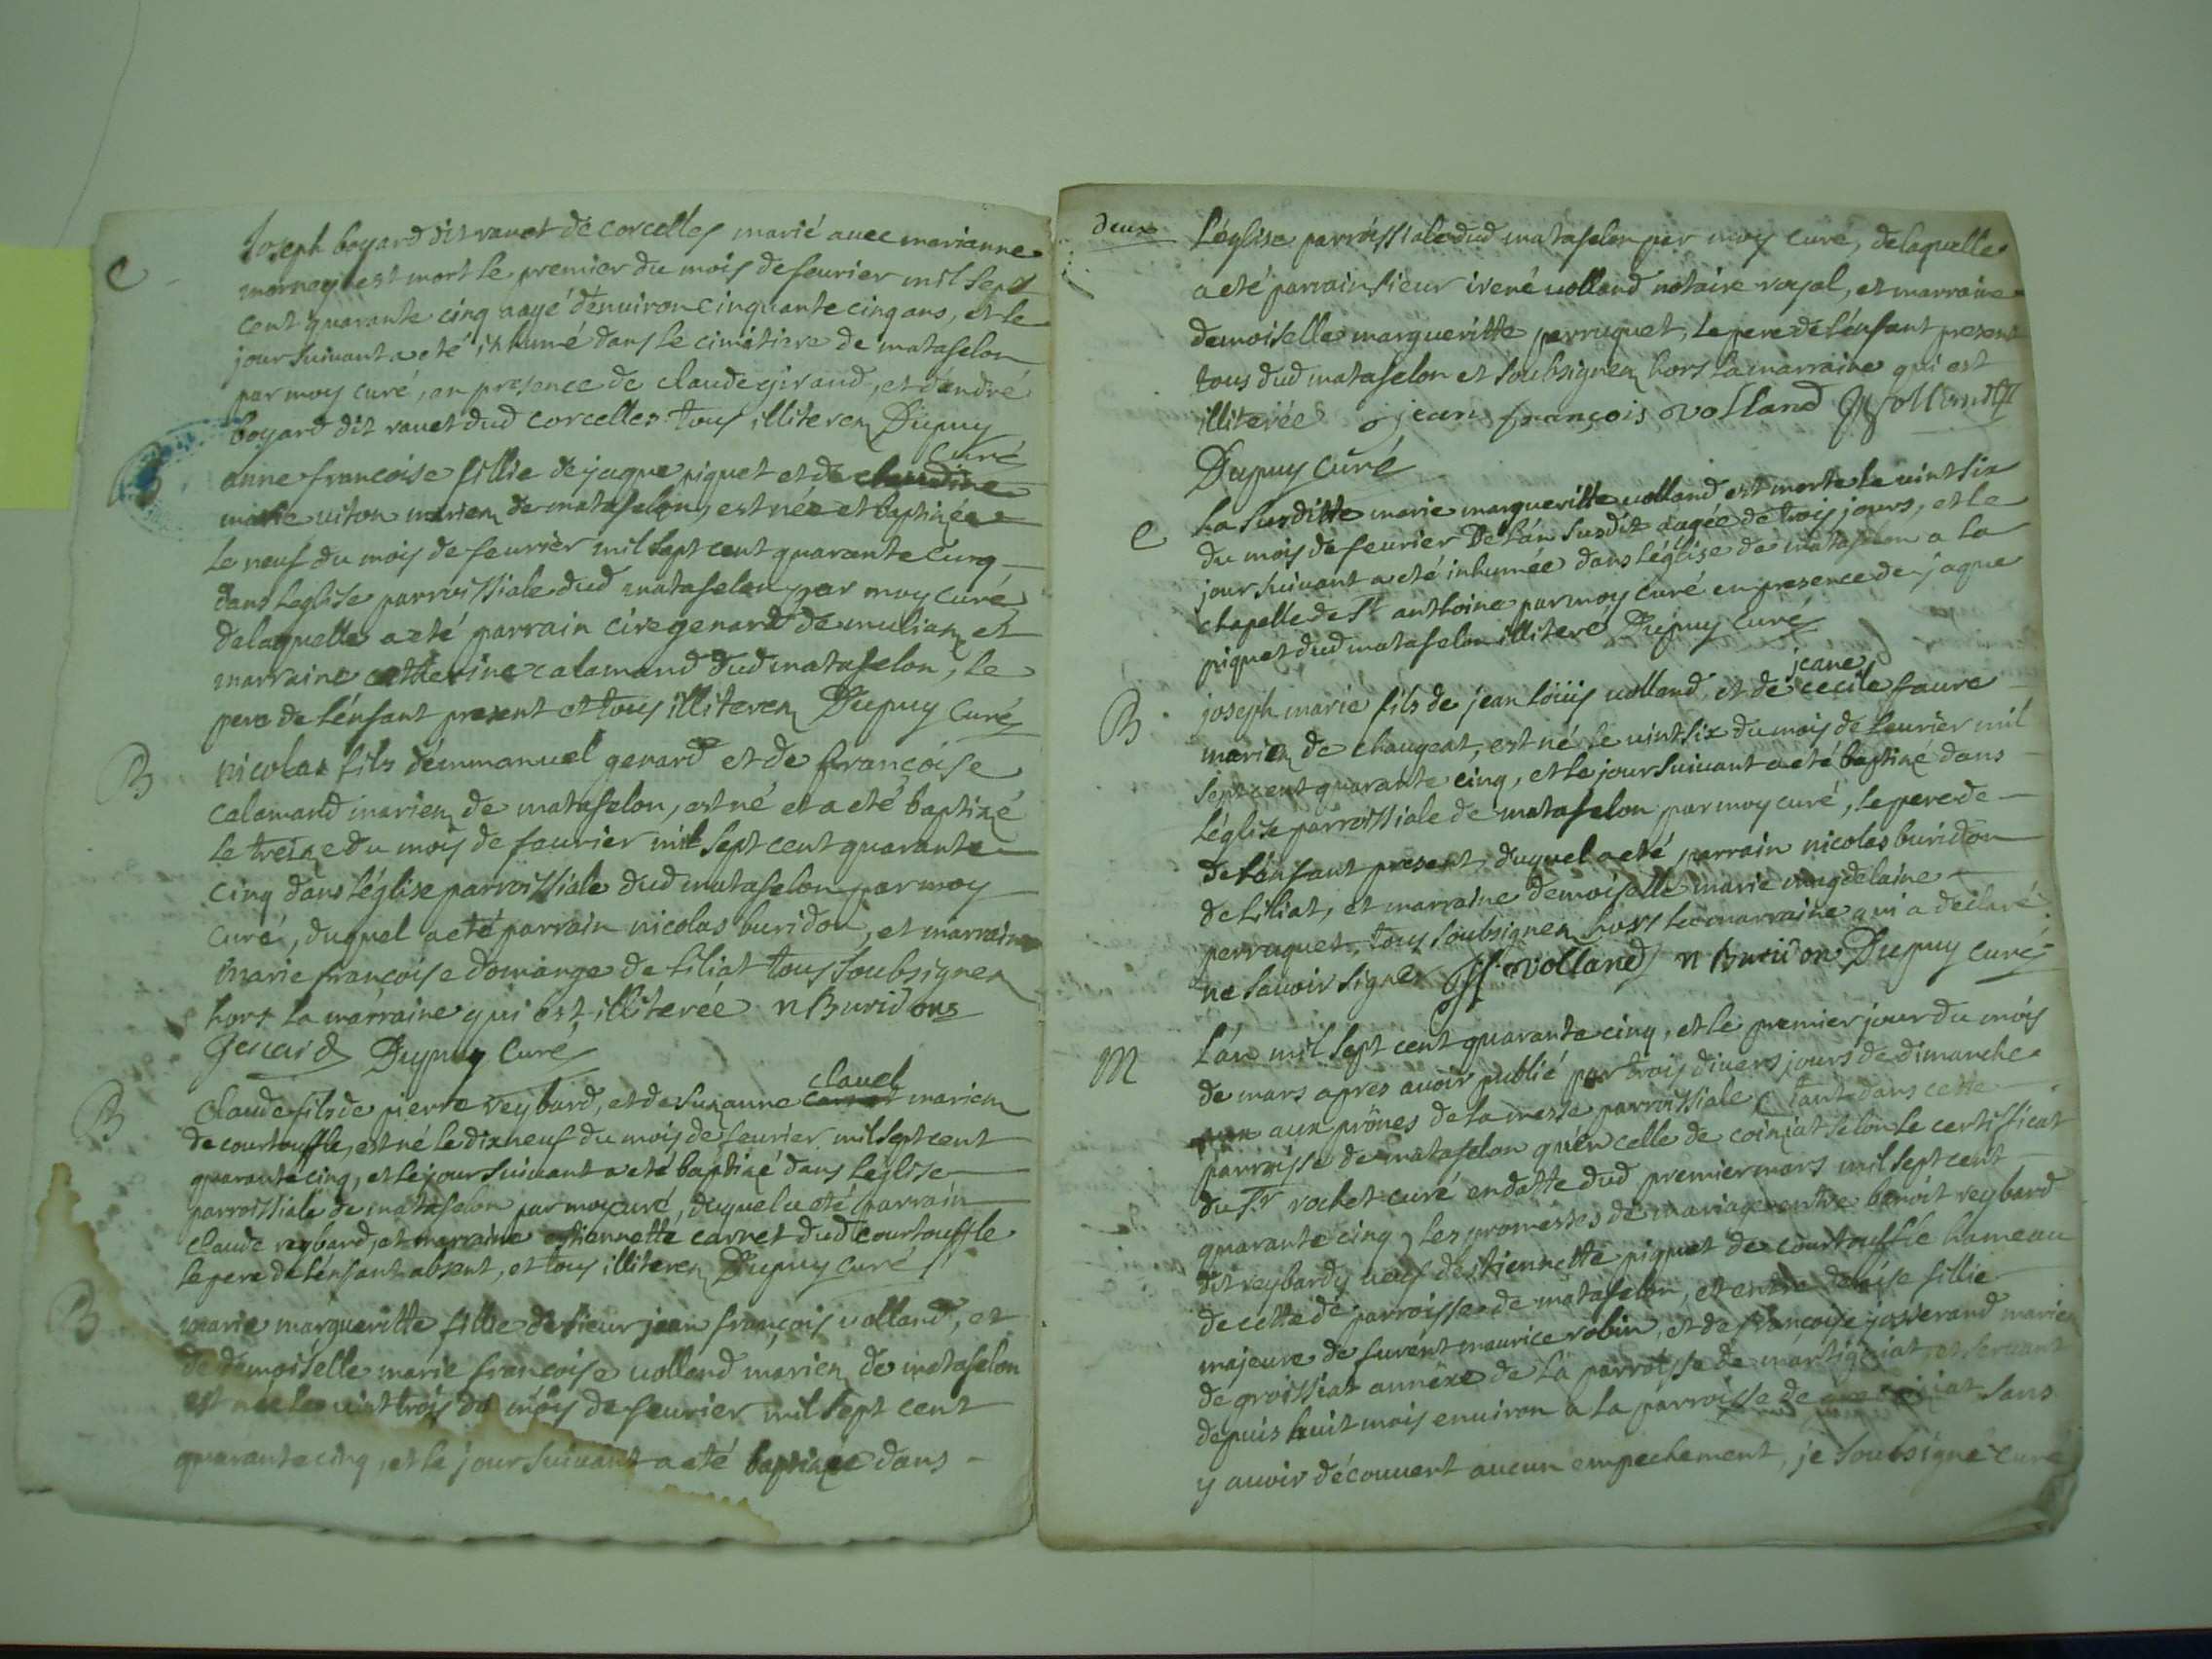 C
Joseph boyard dit ravet de corcelles marié avec marianne
mornay est mort le premier du mois de feurier mil sept
cent quarante cinq aagé d'enuiron cinquante cinq ans, et le
jour suivant a eté inhumé dans le cimetiere de matafelon
par moy curé, en presence de claude girand, et d'andré
boyard dit ravet dud corcelles tous illiterez Dupuy
curé
anne francoise fillie de jaque piquet et de claudine
marie uiton mariez de matafelon, est née et baptizée
le neuf du mois de feurier mil sept cent quarante cinq
dans l'eglise parroissiale dud matafelon par moy curé
de laquelle a eté parrain cire genard de muliaz et
marraine catherine calamand dud matafelon, le
pere de l'énfant present et tous illiterez Dupuy curé
B
nicolas fils d'emmanuel genard et de françoise
calamand mariez de matafelon, est né et a eté baptizé
le treize du mois de feurier mil sept cent quarante
cinq dans l'église parroissiale dud matafelon par moy
curé, duquel a eté parrain nicolas buridon, et marraine
marie françoise domange de siliat tous soubsignez
hors la marraine qui est illiterée n Buridons
Genard Dupuy curé
B
clavel
Claude fils de pierre reybard, et de suzanne carnet mariez
de courtouffle, est né le dixneuf du mois de feurier mil sept cent
quarante cinq, et le jour suivant a eté baptizé dans l'eglise
parroissiale de matafelon par moy curé, duquel a eté parrain
claude reybard, et marraine estiennette carnet dud courtouffle
le pere de l'énfant absent, et tous illiterez Dupuy curé
B
marie margueritte fillie de sieur jean françois volland, et
de demoiselle marie françoise uolland mariez de matafelon
est née le uint trois du mois de feurier mil sept cent
quarante cinq, et le jour suivant a eté baptizée dans
deux
l'église parroissiale dud matafelon par moy curé, de laquelle
a eté parrain sieur irené uolland notaire royal, et marraine
demoiselle margueritte perruquet, le pere de l'énfant present
tous dud matafelon et soubsignez hors la marraine qui est
illiterée jean françois volland
Dupuy curé
C
la susditte marie margueritte uolland est morte le uint six
du mois de feurier de l'án susdit aagée de trois jours, et le
jour suivant a eté inhumée dans l'église de matafelon a la
chapelle de St anthoine par moy curé en presence de jaque
piquet dud matafelon illiteré Dupuy curé
B
jeane
joseph marie fils de jean loüis uolland et de cecile faure
mariez de chaugeat, est né le uint six du mois de feurier mil
sept cent quarante cinq, et le jour suivant a eté baptizé dans
l'église parroissiale de matafelon par moy curé, le pere de
de l'énfant present, duquel a eté parrain nicolas buridon
de siliat, et marraine demoiselle marie magdelaine
perruquet, tous soubsignez hors la marraine qui a declaré
ne sauoir signer volland n Buridon Dupuy curé
M
L'án mil sept cent quarante cinq, et le premier jour du mois
de mars apres auoir publié par trois diuers jours de dimanche
aux prônes de la messe parroissiale tant dans cette
parroisse de matafelon qu'en celle de coiziat selon le certifficat
du Sr rochet curé en datte dud premier mars mil sept cent
quarante cinq, les promesses de mariage entre benoit reybard
dit reybardy ueuf d'estiennette piquet de courtouffle hameau
de cette de parroisse de matafelon, et entre deloise fillie
majeure de furent maurice robin, et de françoise josserand mariez
de groissiat annéxe de la parroisse de martigniat, et seruant
depuis huit mois enuiron a la parroisse de sans
y auoir découuert aucun empechement, je soubsigné curé